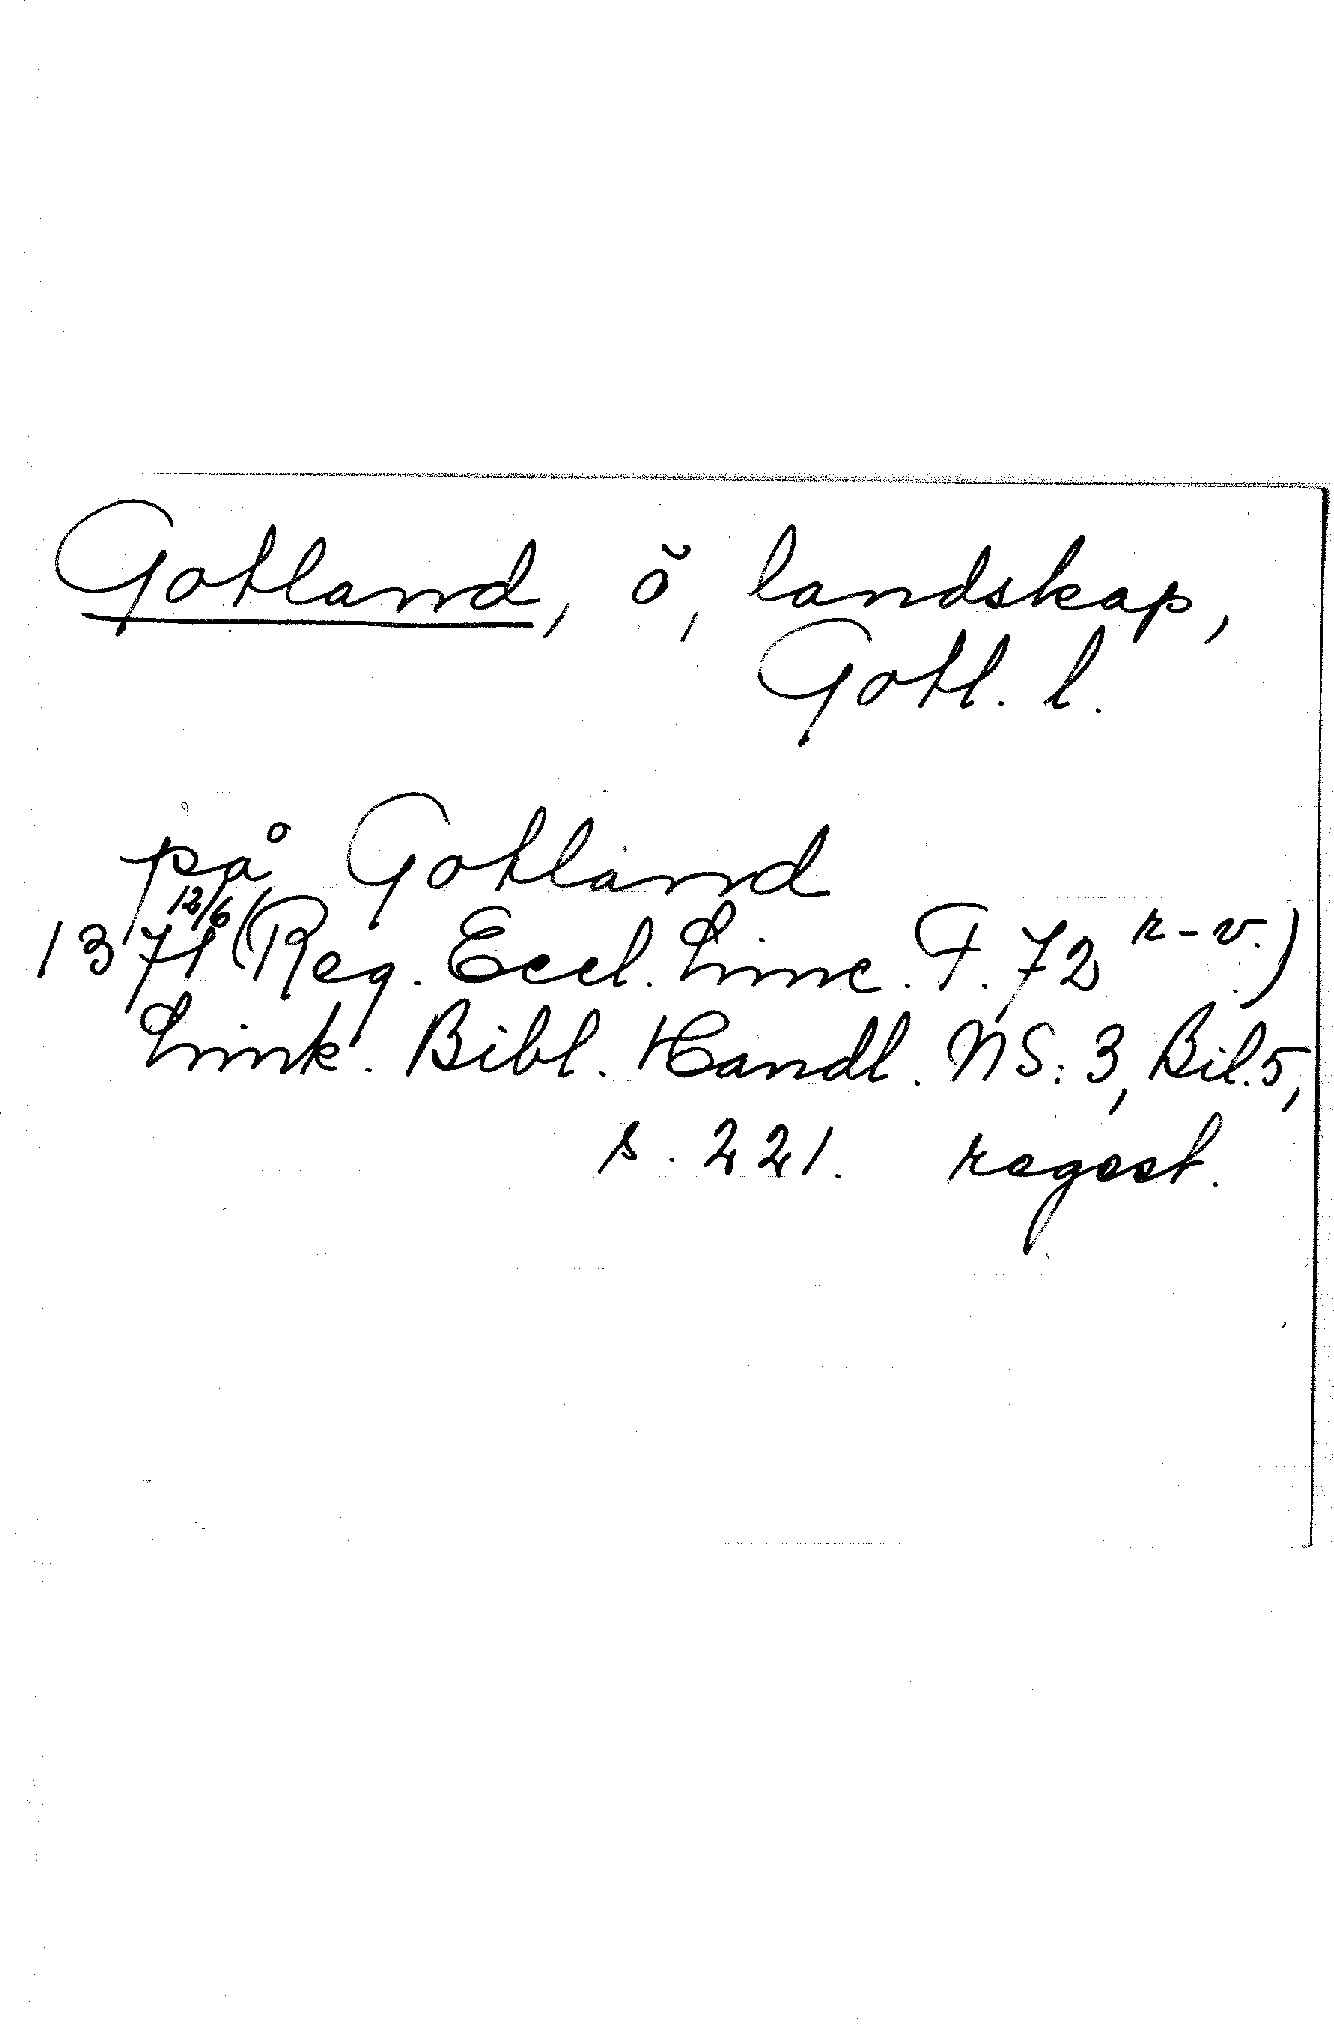 Gotland, ö, landskap,
Gotl. l.
på Gotland
1371 12/6 (Reg. Eccl. Linc. F. 72 r-v.)
Link. Bibl. Handl. NS: 3, Bil. 5,
s. 221. regest.